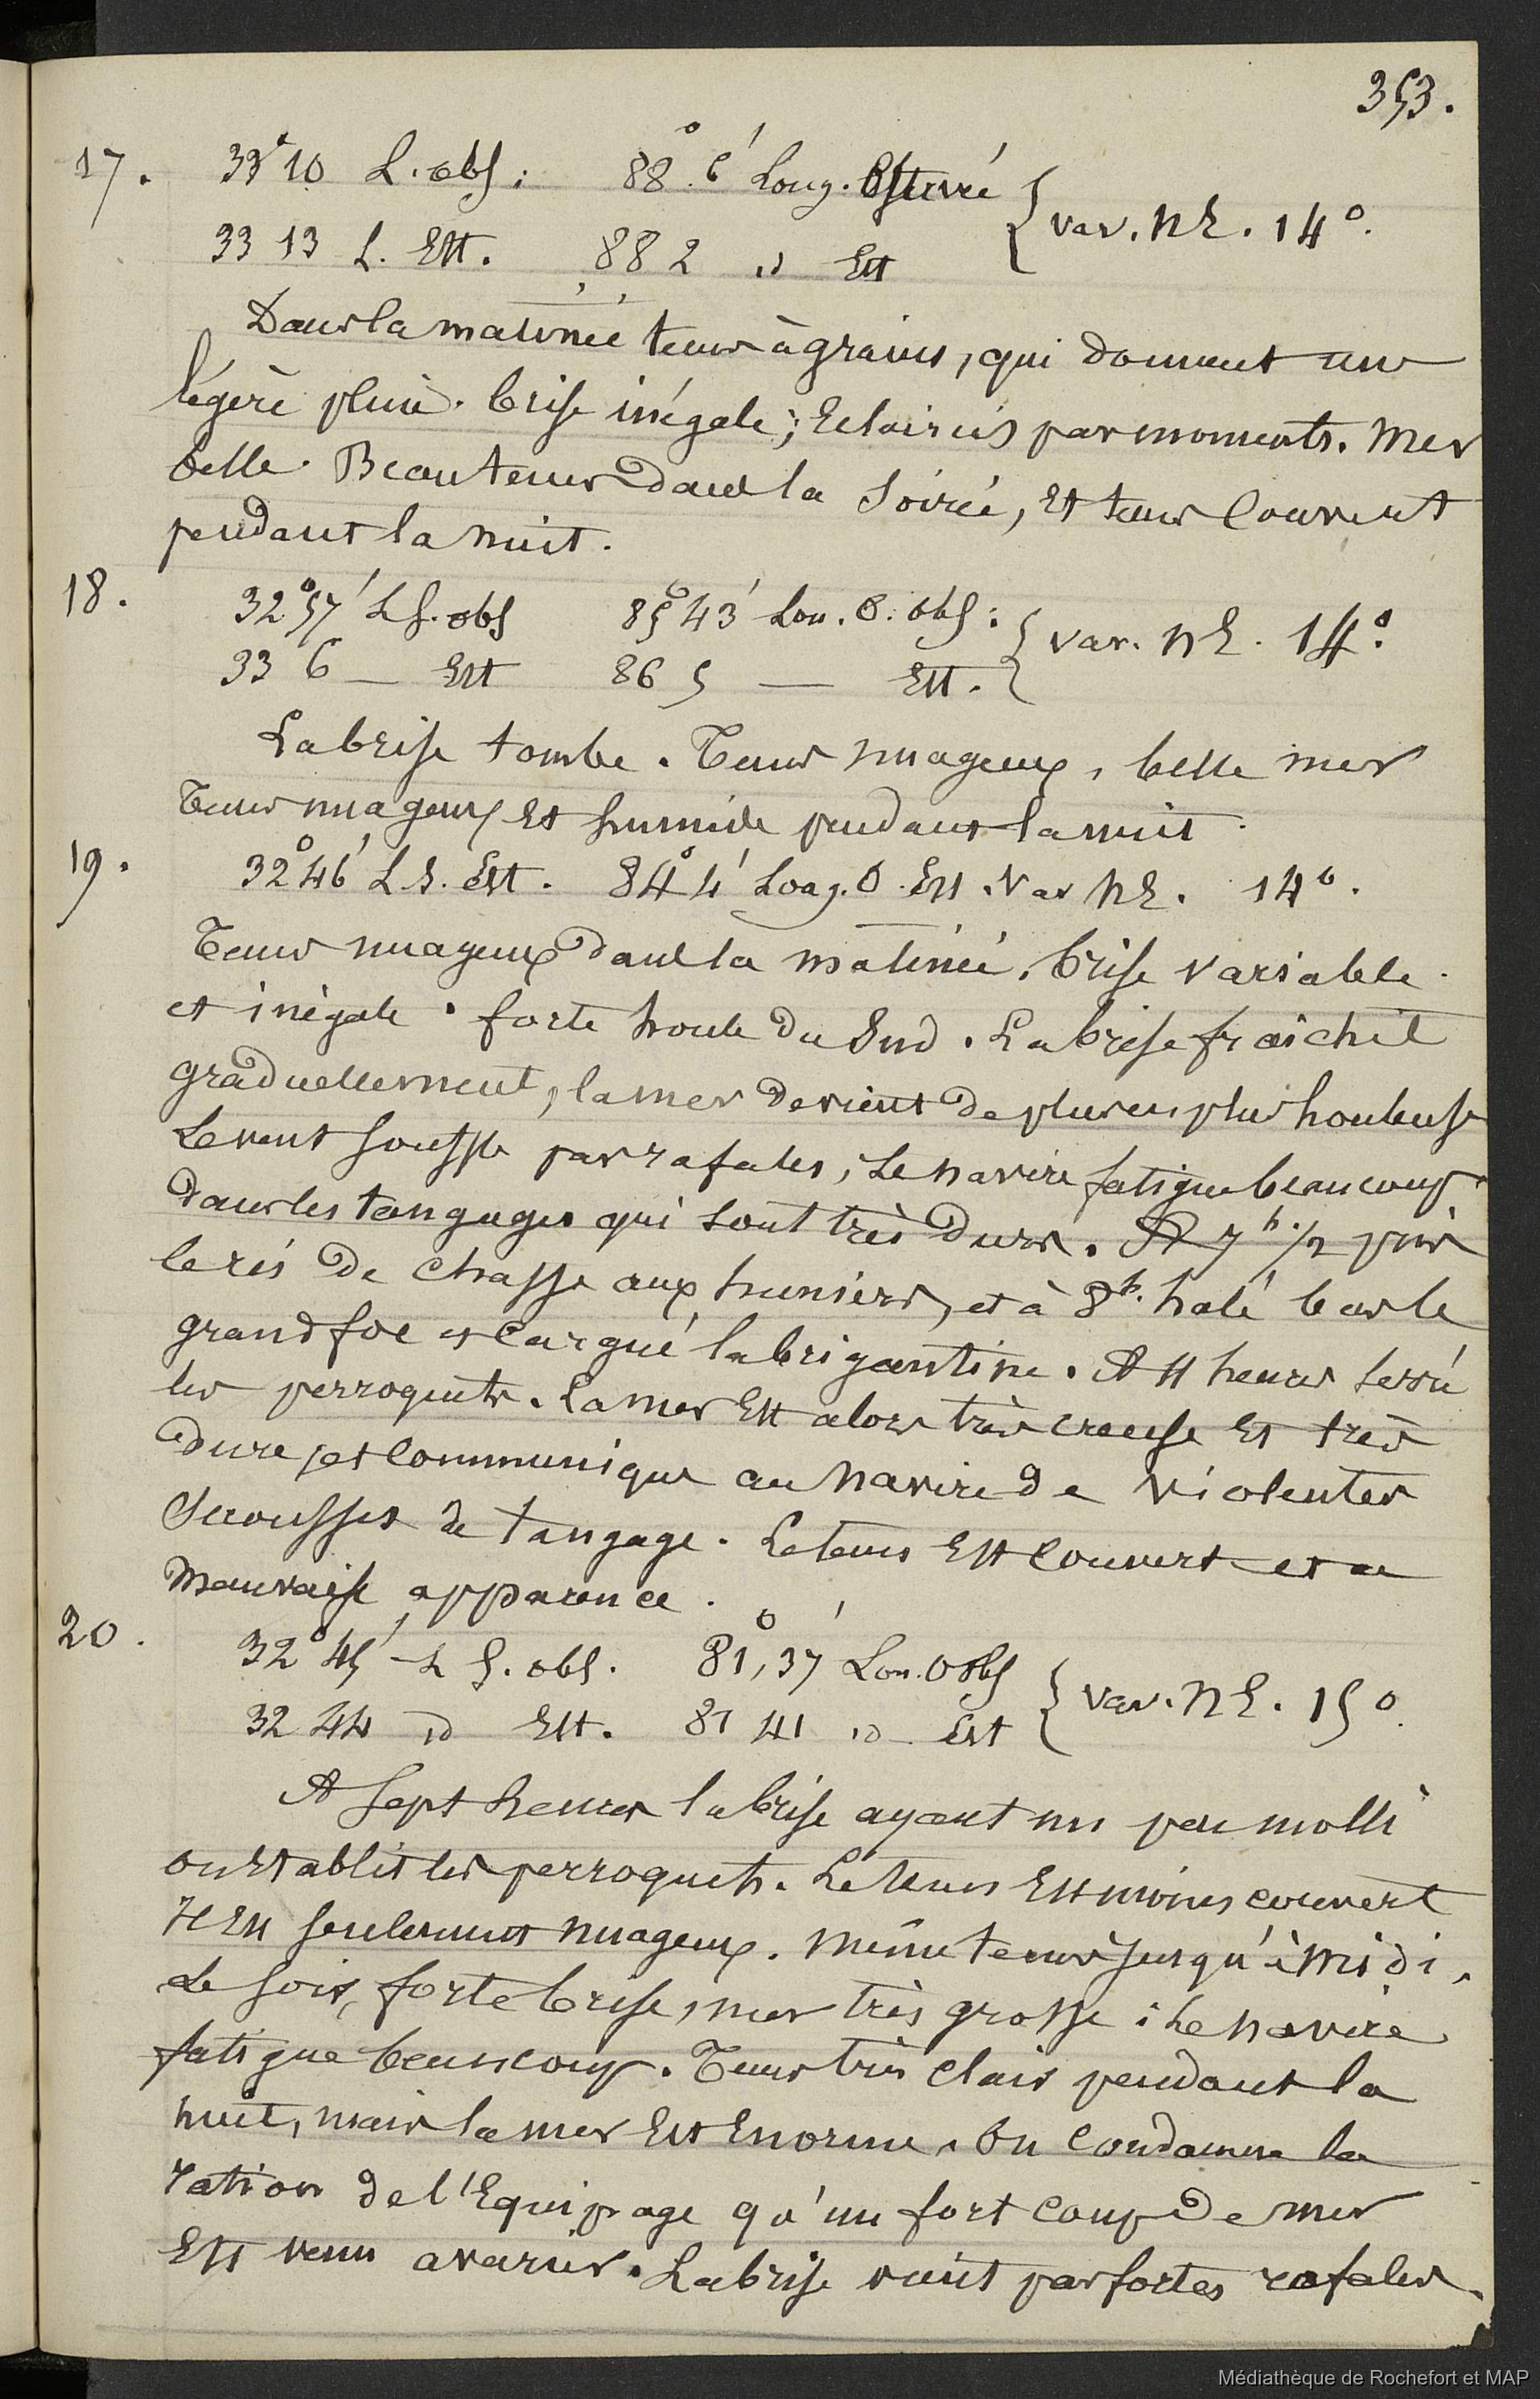 353.
17. 33° 10 L. obs: 88° 6' Long. Observé
33 13 L. Est. 88 2 id Est { var. NE. 14°.
Dans la matinée tems à grains, qui donnent une
légère pluie. brise inégale; Eclaircis par moments. Mer
belle. Beau tems dans la soirée, et tems couvert
pendant la nuit.
18. 32° 57' L S. obs 85° 43' Lon. O. obs:
33 6 — Est 86 5 — Est. } var. NE. 14°.
La brise tombe. Tems nuageux, belle mer
Tems nuageux et humide pendant la nuit.
19. 32° 46' L S. Est. 84° 4' Long. O. Est. Var NE. 14°.
Tems nuageux dans la matinée, brise variable
et inégale. forte houle du Sud. La brise fraîchit
graduellement, la mer devient de plus en plus houleuse
Le vent souffle par rafales; Le navire fatigue beaucoup
dans les tangages qui sont très durs. A 7h. 1/2 pris
le ris de chasse aux huniers, et à 8h. halé bas le
grand foc et cargué la brigantine. A 11 heures serré
les perroquets. La mer Est alors très creuse et très
dure, et communique au navire de violentes
secousses de tangage. Le tems Est couvert et a
mauvaise apparence.
20. 32° 45' L S. obs. 81°, 37' Lon. O obs
32 44 id Est. 81 41 id Est { var. NE. 15°.
A sept heures la brise ayant un peu molli
on établit les perroquets. Le tems Est moins couvert
Il Est seulement nuageux. même tems jusqu'à midi.
Le soir, forte brise, mer très grosse; Le navire
fatigue beaucoup. Tems très clair pendant la
nuit, mais la mer Est Enorme. On condamne la
ration de l'Equipage qu'un fort coup de mer
Est venu avarier. La brise vient par fortes rafales.
Médiathèque de Rochefort et MAP